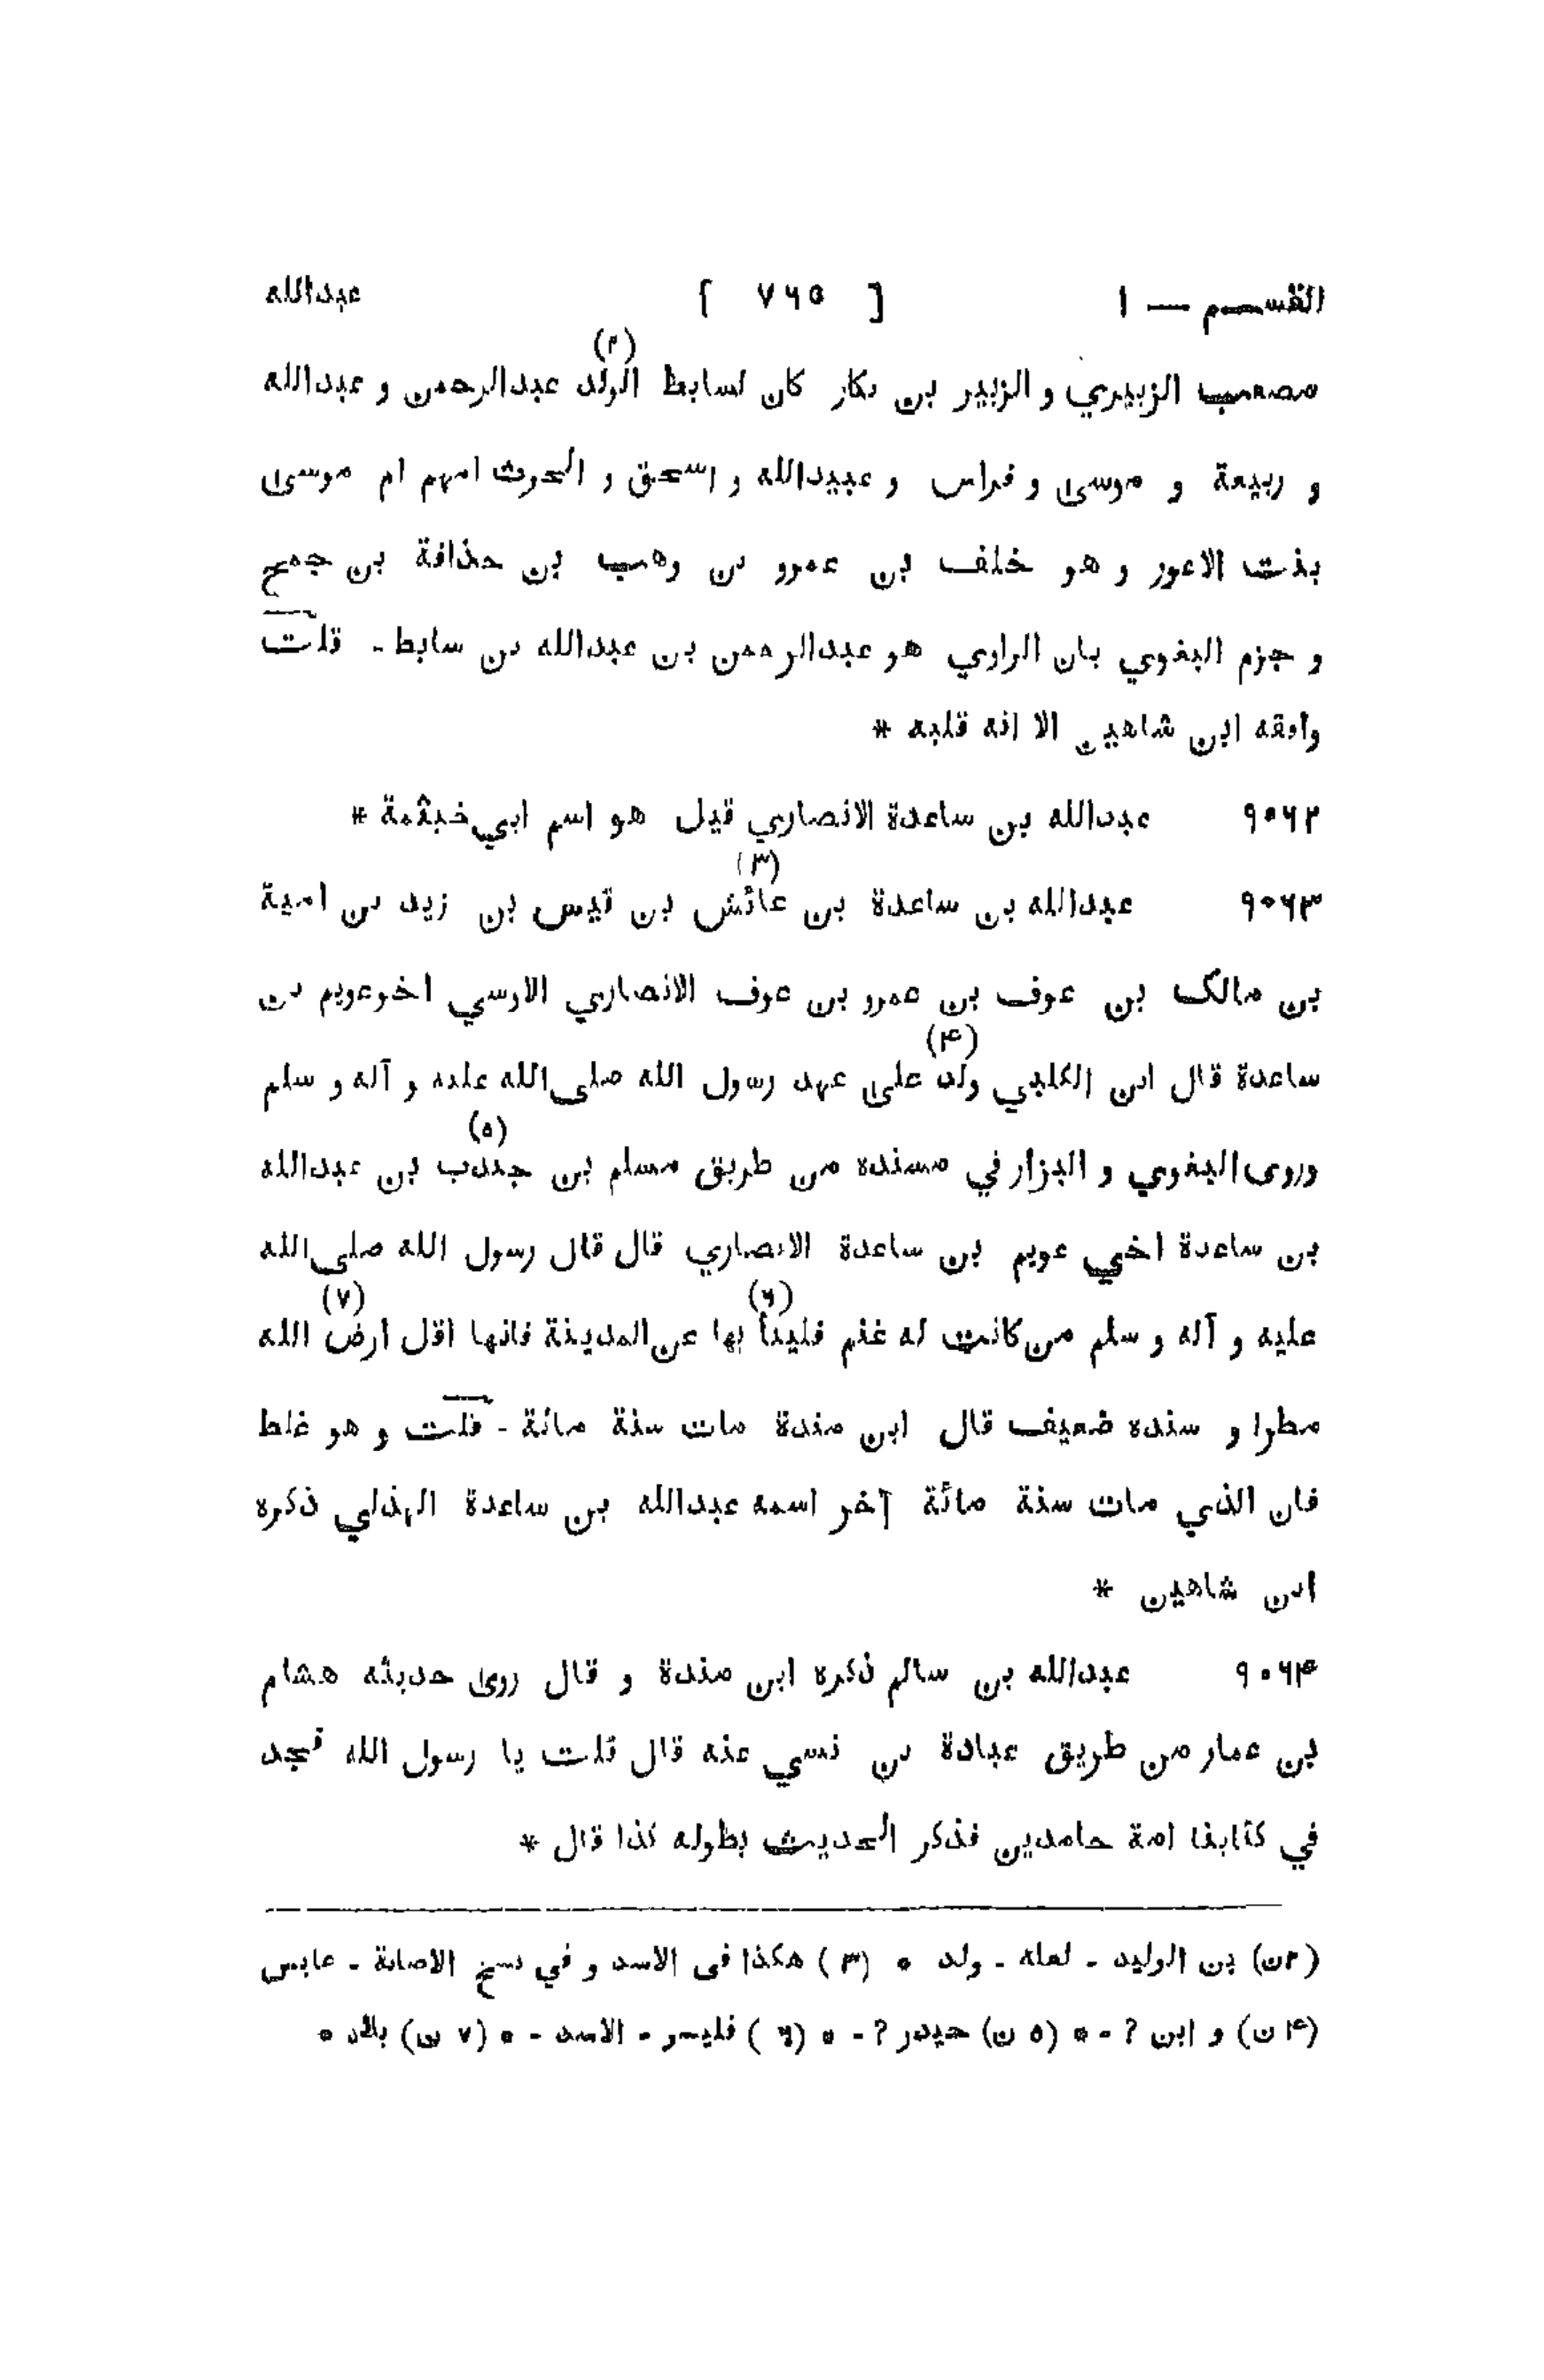 القسم — ١ [ ٧٦٥ ] عبدالله
مصعب الزبيري و الزبير بن بكار كان لسابط الولد (٢) عبدالرحمن و عبدالله
و ربيعة و موسى و فراس و عبيدالله و اسحق و الحرث امهم ام موسى
بنت الاعور و هو خلف بن عمرو بن وهب بن حذافة بن جمح
و جزم البغوي بان الراوي هو عبدالرحمن بن عبدالله بن سابط - قلت
وافقه ابن شاهين الا انه قلبه *
٩٠٦٢ عبدالله بن ساعدة الانصاري قيل هو اسم ابي خيثمة *
٩٠٦٣ عبدالله بن ساعدة بن عائش (٣) بن قيس بن زيد بن امية
بن مالك بن عوف بن عمرو بن عوف الانصاري الاوسي اخو عويم بن
ساعدة قال ابن الكلبي ولد (٤) على عهد رسول الله صلى الله عليه و آله و سلم
وروى البغوي و البزار في مسنده من طريق مسلم بن جندب (٥) بن عبدالله
بن ساعدة اخي عويم بن ساعدة الانصاري قال قال رسول الله صلى الله
عليه و آله و سلم من كانت له غنم فلينأ (٦) بها عن المدينة فانها اقل ارض (٧) الله
مطرا و سنده ضعيف قال ابن مندة مات سنة مائة - قلت و هو غلط
فان الذي مات سنة مائة آخر اسمه عبدالله بن ساعدة الهذلي ذكره
ابن شاهين *
٩٠٦٤ عبدالله بن سالم ذكره ابن مندة و قال روى حديثه هشام
بن عمار من طريق عبادة بن نسي عنه قال قلت يا رسول الله نجد
في كتابنا امة حامدين فذكر الحديث بطوله كذا قال *
(٢ن) بن الوليد - لعله - ولد * (٣) هكذا فى الاسد و في نسخ الاصابة - عابس
(٤ ن) و ابن ? - * (٥ ن) حيدر ? - * (٦) فليسر - الاسد - * (٧ ن) بلاد *